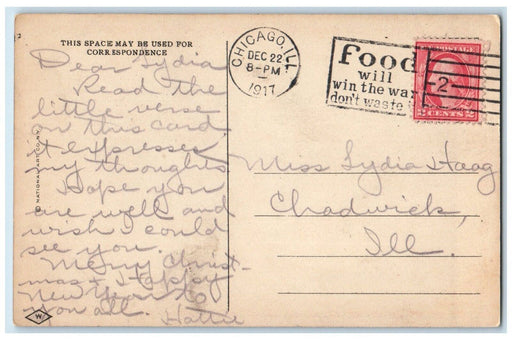 THIS SPACE MAY BE USED FOR
CORRESPONDENCE
Dear Lydia
Read the
little verse
on this card
it expresses
my thoughts
Hope you
are well and
wish I could
see you.
Merry Christ-
mas + Happy
New Year to
you all.
Hattie
© NATIONAL ART CO. N.Y.
W
CHICAGO, ILL
DEC 22
8-PM
1917
Food
will
win the war
don't waste it
POSTAGE
2
2 CENTS 2
Miss Lydia Haag
Chadwick,
Ill.